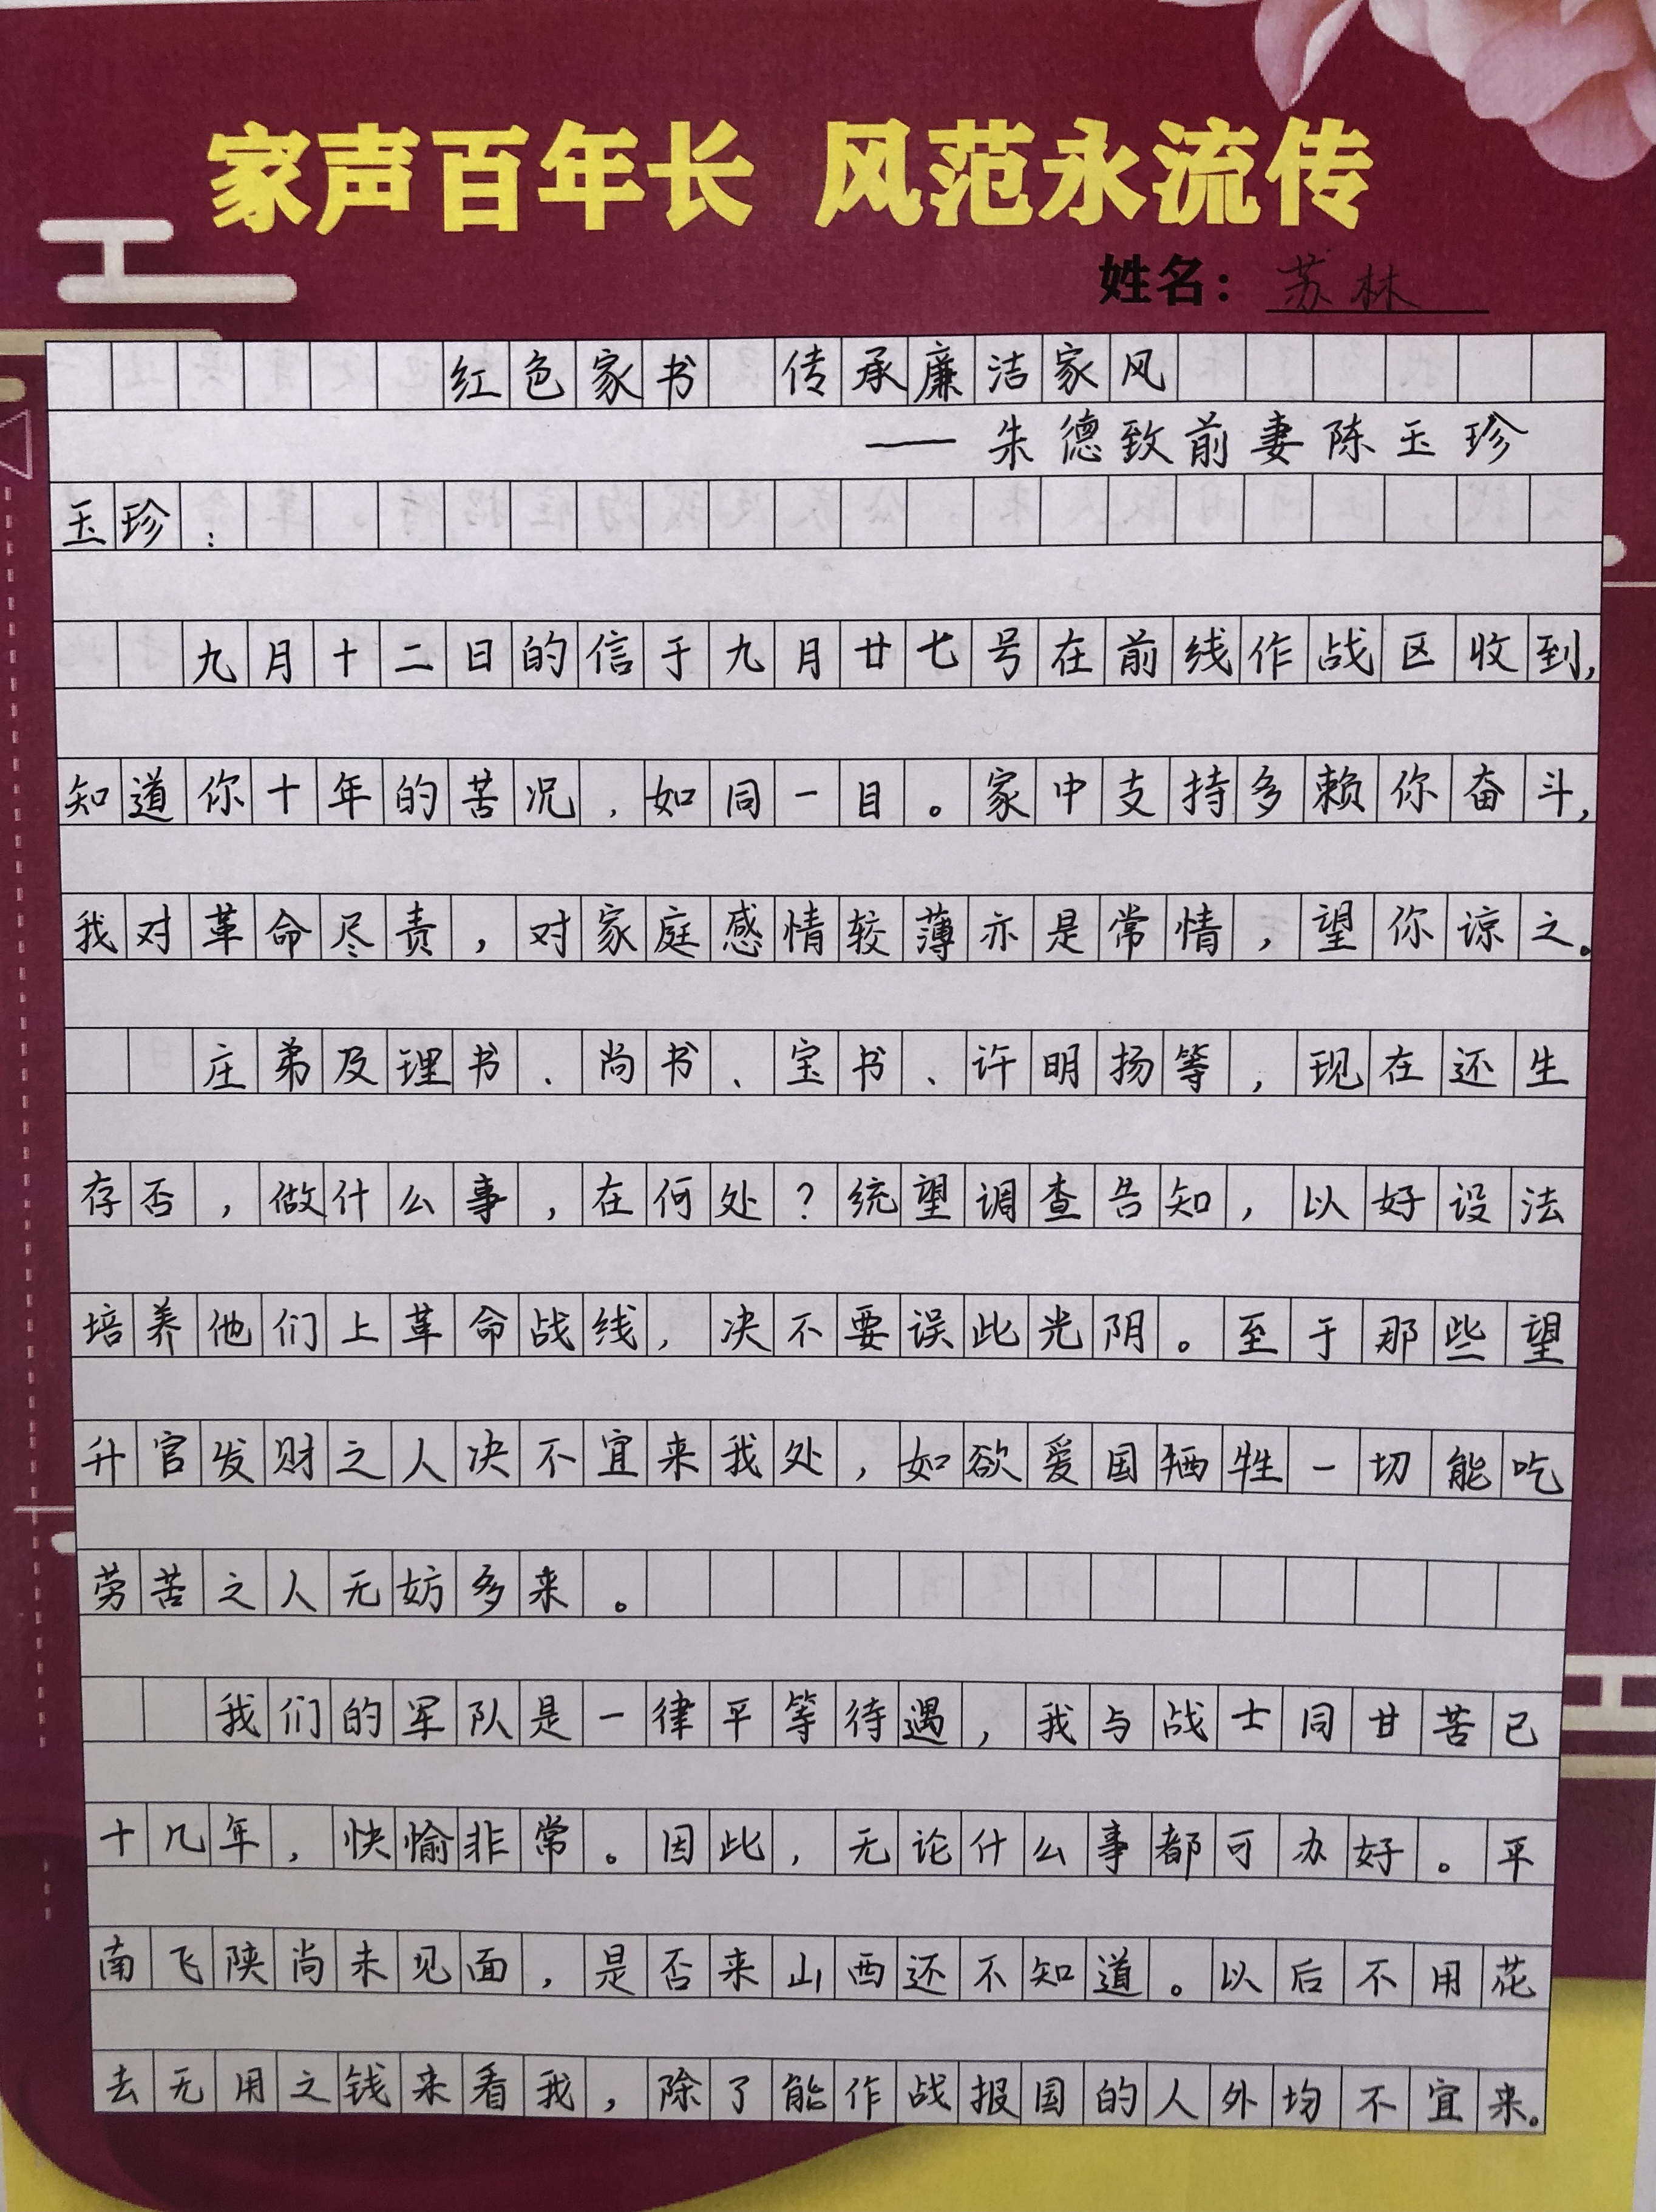 家声百年长 风范永流传
姓名：苏林
红色家书 传承廉洁家风
——朱德致前妻陈玉珍
玉珍：
九月十二日的信于九月廿七号在前线作战区收到，
知道你十年的苦况，如同一目。家中支持多赖你奋斗，
我对革命尽责，对家庭感情较薄亦是常情，望你谅之。
庄弟及理书、尚书、宝书、许明扬等，现在还生
存否，做什么事，在何处？统望调查告知，以好设法
培养他们上革命战线，决不要误此光阴。至于那些望
升官发财之人决不宜来我处，如欲爱国牺牲一切能吃
劳苦之人无妨多来。
我们的军队是一律平等待遇，我与战士同甘苦已
十几年，快愉非常。因此，无论什么事都可办好。平
南飞陕尚未见面，是否来山西还不知道。以后不用花
去无用之钱来看我，除了能作战报国的人外均不宜来。